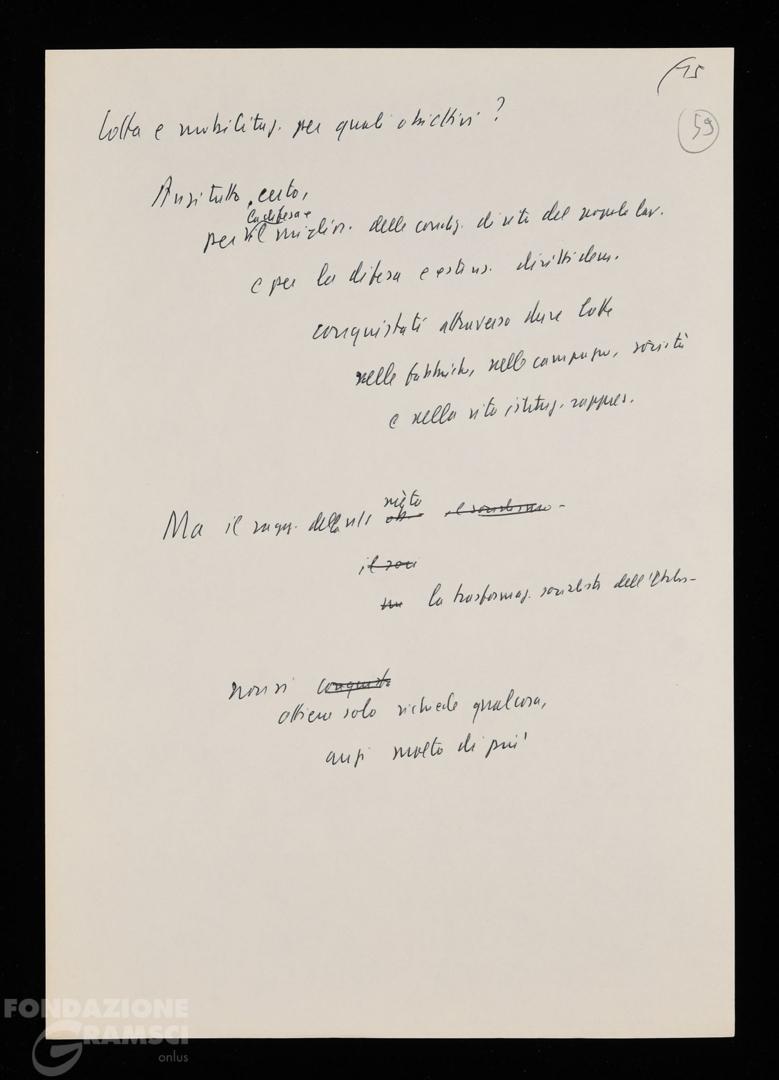 15
59
Lotta e mobilitaz. per quali obiettivi?
Anzitutto, certo,
la difesa e
per il miglior. delle condiz. di vita del popolo lav.
e per la difesa e estens. diritti dem.
conquistati attraverso dure lotte
nelle fabbriche, nelle campagne, società
e nella vita istituz. rappres.
Ma il ragg. della
il socialismo -
il soci
la trasformaz. socialista dell'Italia -
non si conquista
ottiene solo richiede qualcosa,
anzi molto di più
FONDAZIONE
GRAMSCI
onlus